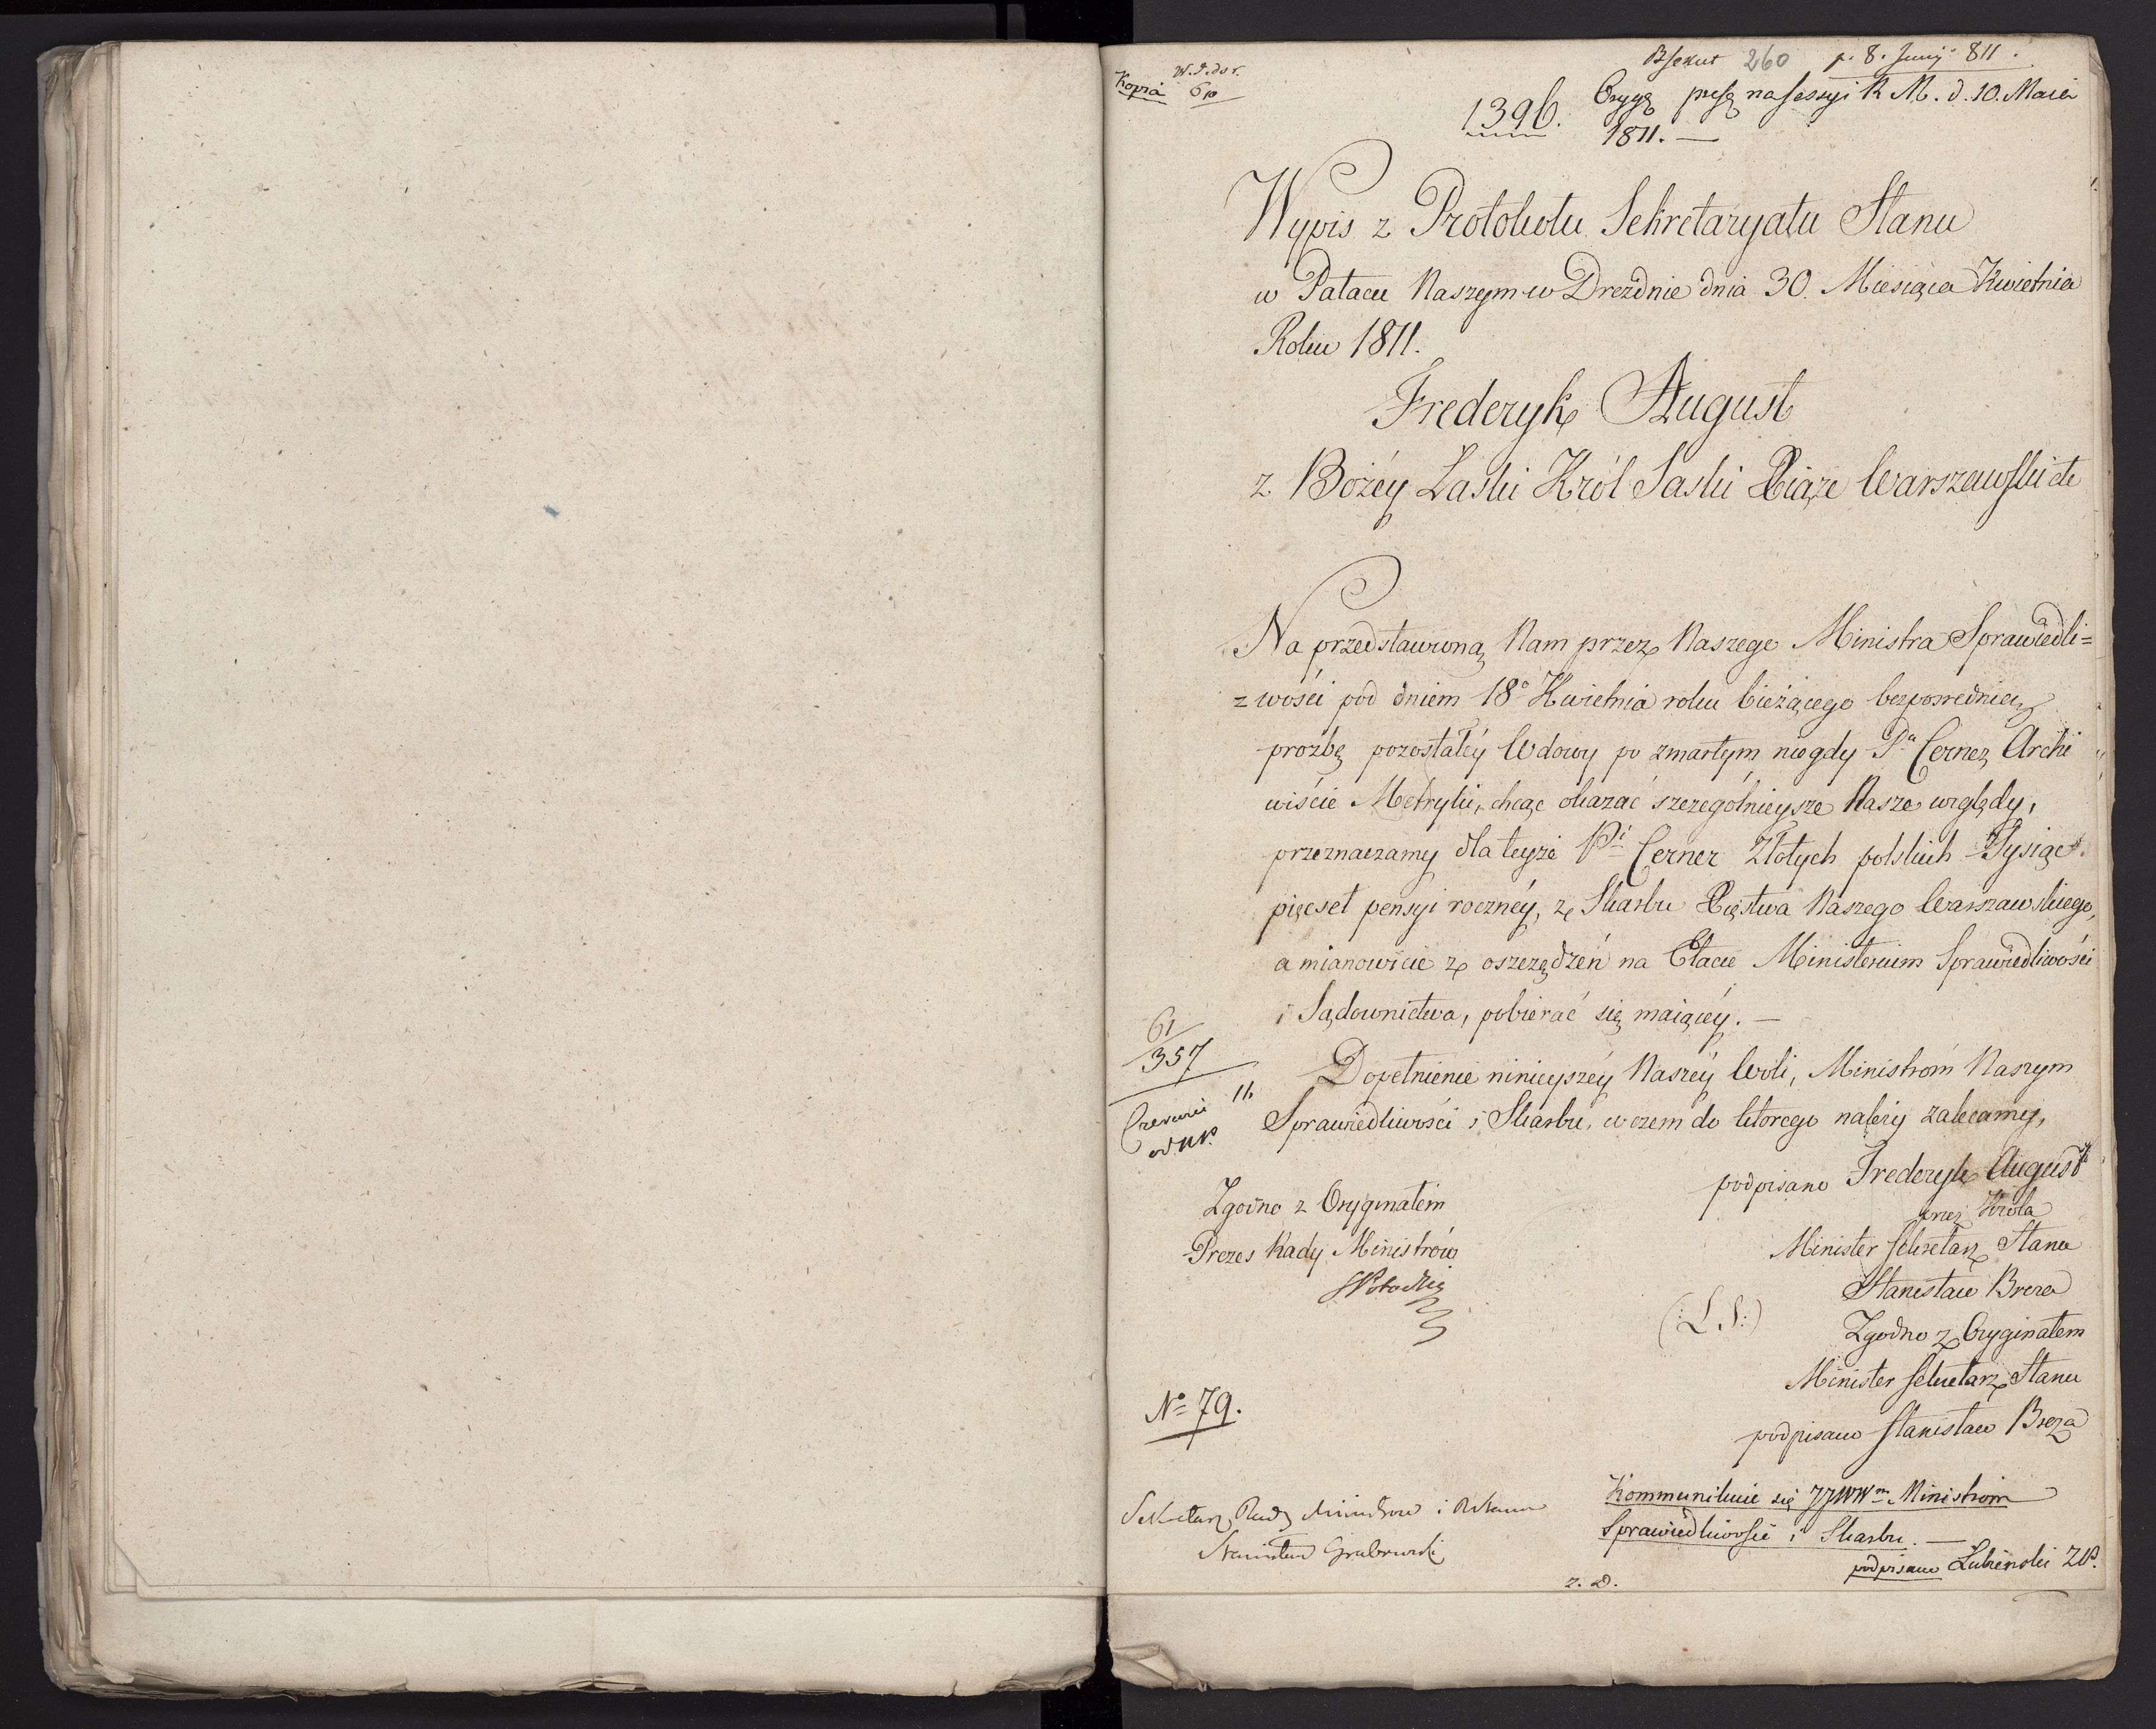 Kopia
260 p. 8. Junij 811.
1396. Oryg. na sessyi R. M. d. 10. Maia
1811. —
Wypis z Protokołu Sekretaryatu Stanu
w Pałacu Naszym w Dreźdnie dnia 30. Miesiąca Kwietnia
Roku 1811.
Frederyk August
z Bożéy Łaski Król Saski Xiąże Warszawski etc
Na przedstawioną Nam przez Naszego Ministra Sprawiedli=
=wości pod dniem 18° Kwietnia roku bieżącego bezpośrednio
prozbę pozostałéy Wdowy po zmarłym niegdy Pa Cerner Archi
wiście Metryki, chcąc okazać szczególnieysze Nasze względy,
przeznaczamy dla teyże Pi Cerner Złotych polskich Tysiąc
pięcset pensyi rocznéy, z Skarbu Xięstwa Naszego Warszawskiego,
a mianowicie z oszczędzeń na Etacie Ministerium Sprawiedliwości
i Sądownictwa, pobierać się maiącéy. —
61
357
11.
Dopełnienie ninieyszéy Naszéy Woli, Ministróm Naszym
Sprawiedliwości i Skarbu, w czem do którego należy zalecamy,
podpisano Frederyk August
przez Króla
Zgodno z Oryginałem
Prezes Rady Ministrów
Minister Sekretarz Stanu
SPotocki
Stanisław Breza
(:L.S:)
Zgodno z Oryginałem
Minister Sekretarz Stanu
No 79.
podpisano Stanisław Breza
Kommunikuie się JJWWm Ministróm
Sprawiedliwości i Skarbu. —
Sekretarz Rady Ministrów i R. Stanu
Stanisław Grabowski
podpisano Łubieński ZP.
z. D.